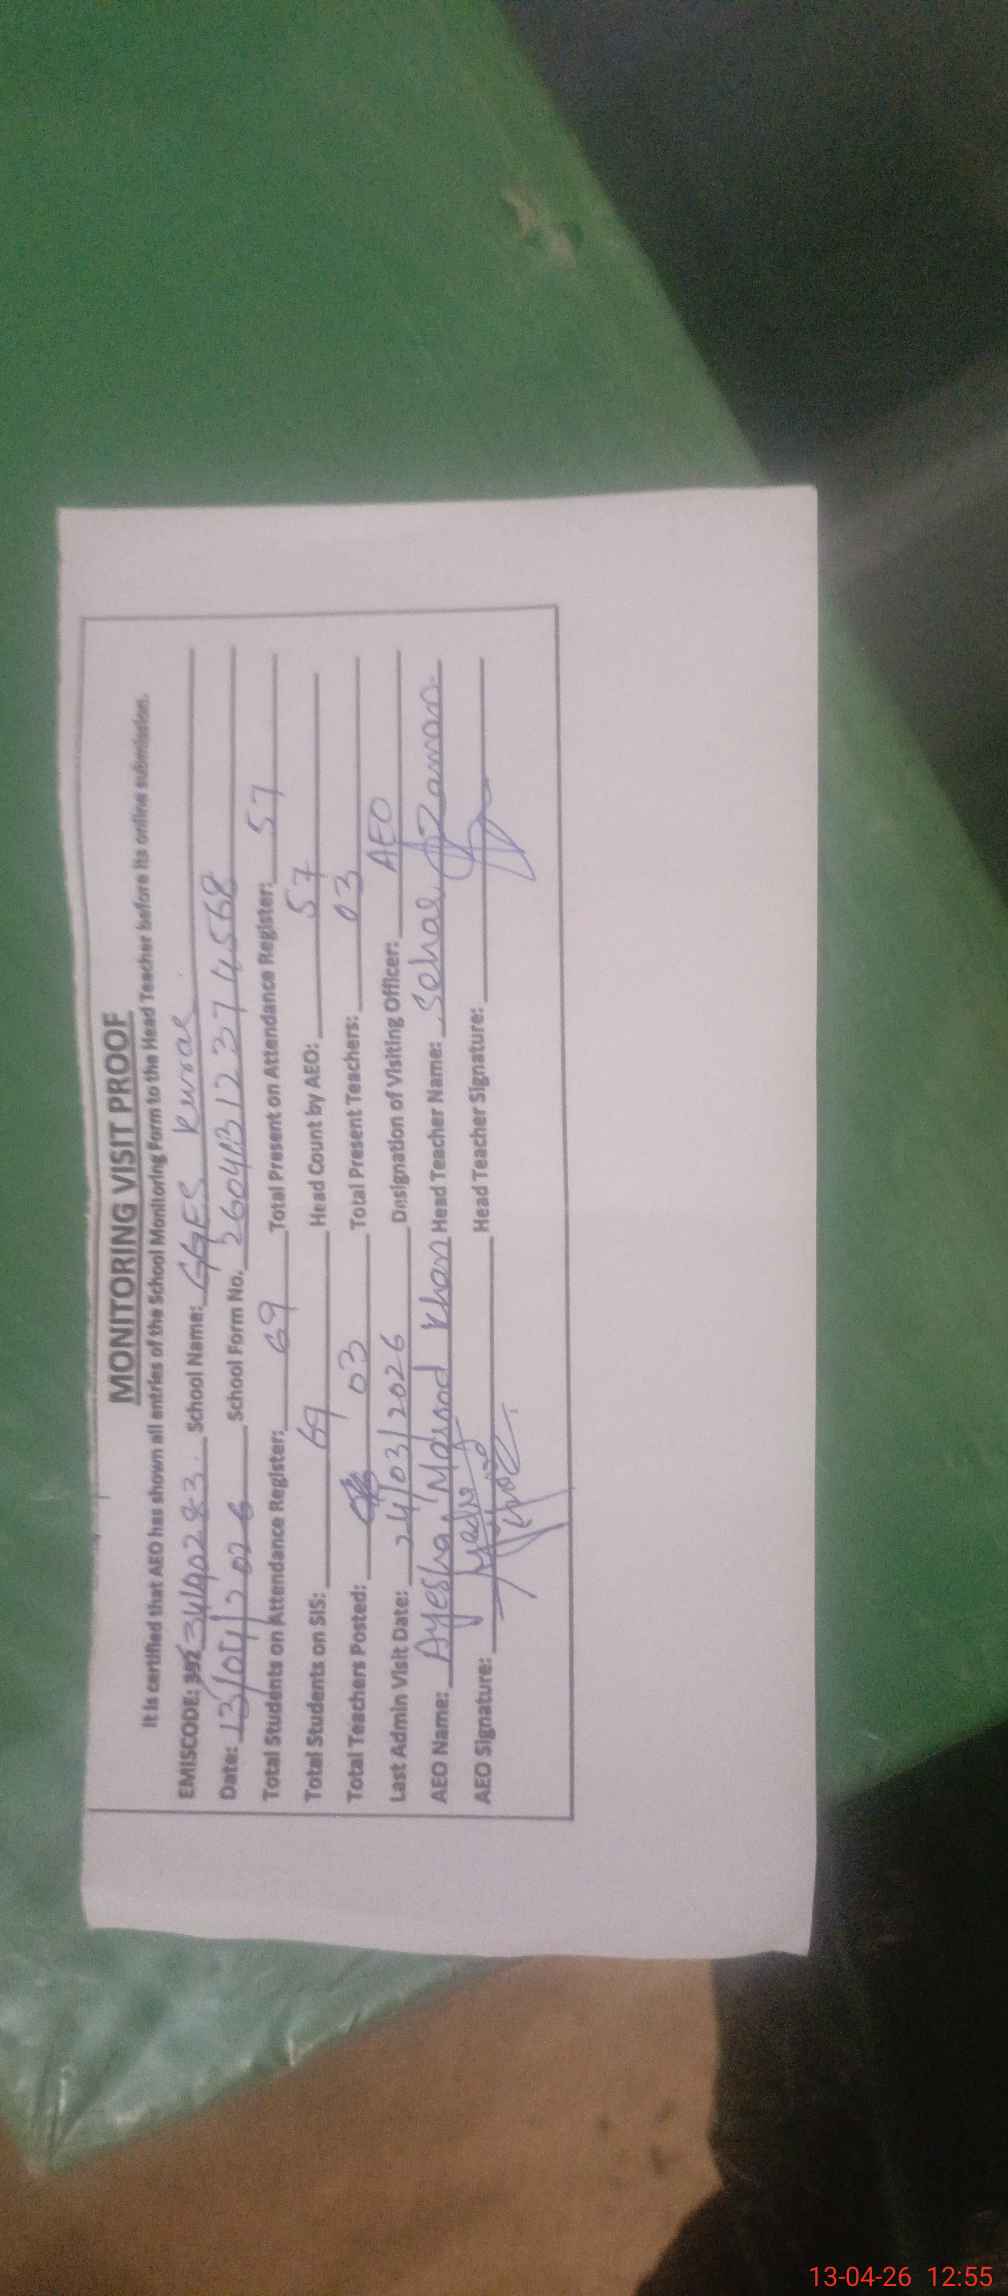 MONITORING VISIT PROOF
It is certified that AEO has shown all entries of the School Monitoring Form to the Head Teacher before its online submission.
EMISCODE: 34190283 School Name: GGES Kwral
Date: 13/04/2026 School Form No. 260413123274568
Total Students on Attendance Register: 69 Total Present on Attendance Register: 57
Total Students on SIS: 69 Head Count by AEO: 57
Total Teachers Posted: 03 Total Present Teachers: 03
Last Admin Visit Date: 24/03/2026 Designation of Visiting Officer: AEO
AEO Name: Ayesha Maqsood Khan Head Teacher Name: Zaman
AEO Signature: Head Teacher Signature:
13-04-26 12:55